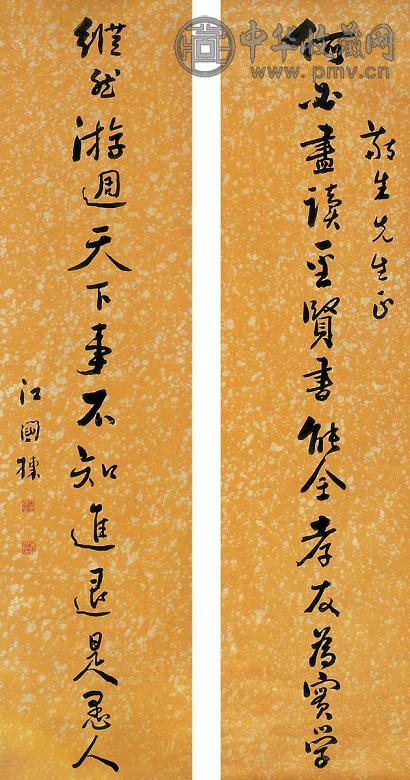 中华收藏网
www.pmv.cn
敬生先生正
何必盡讀聖賢書能全孝友為實学
縱然游週天下事不知進退是愚人
江國棟